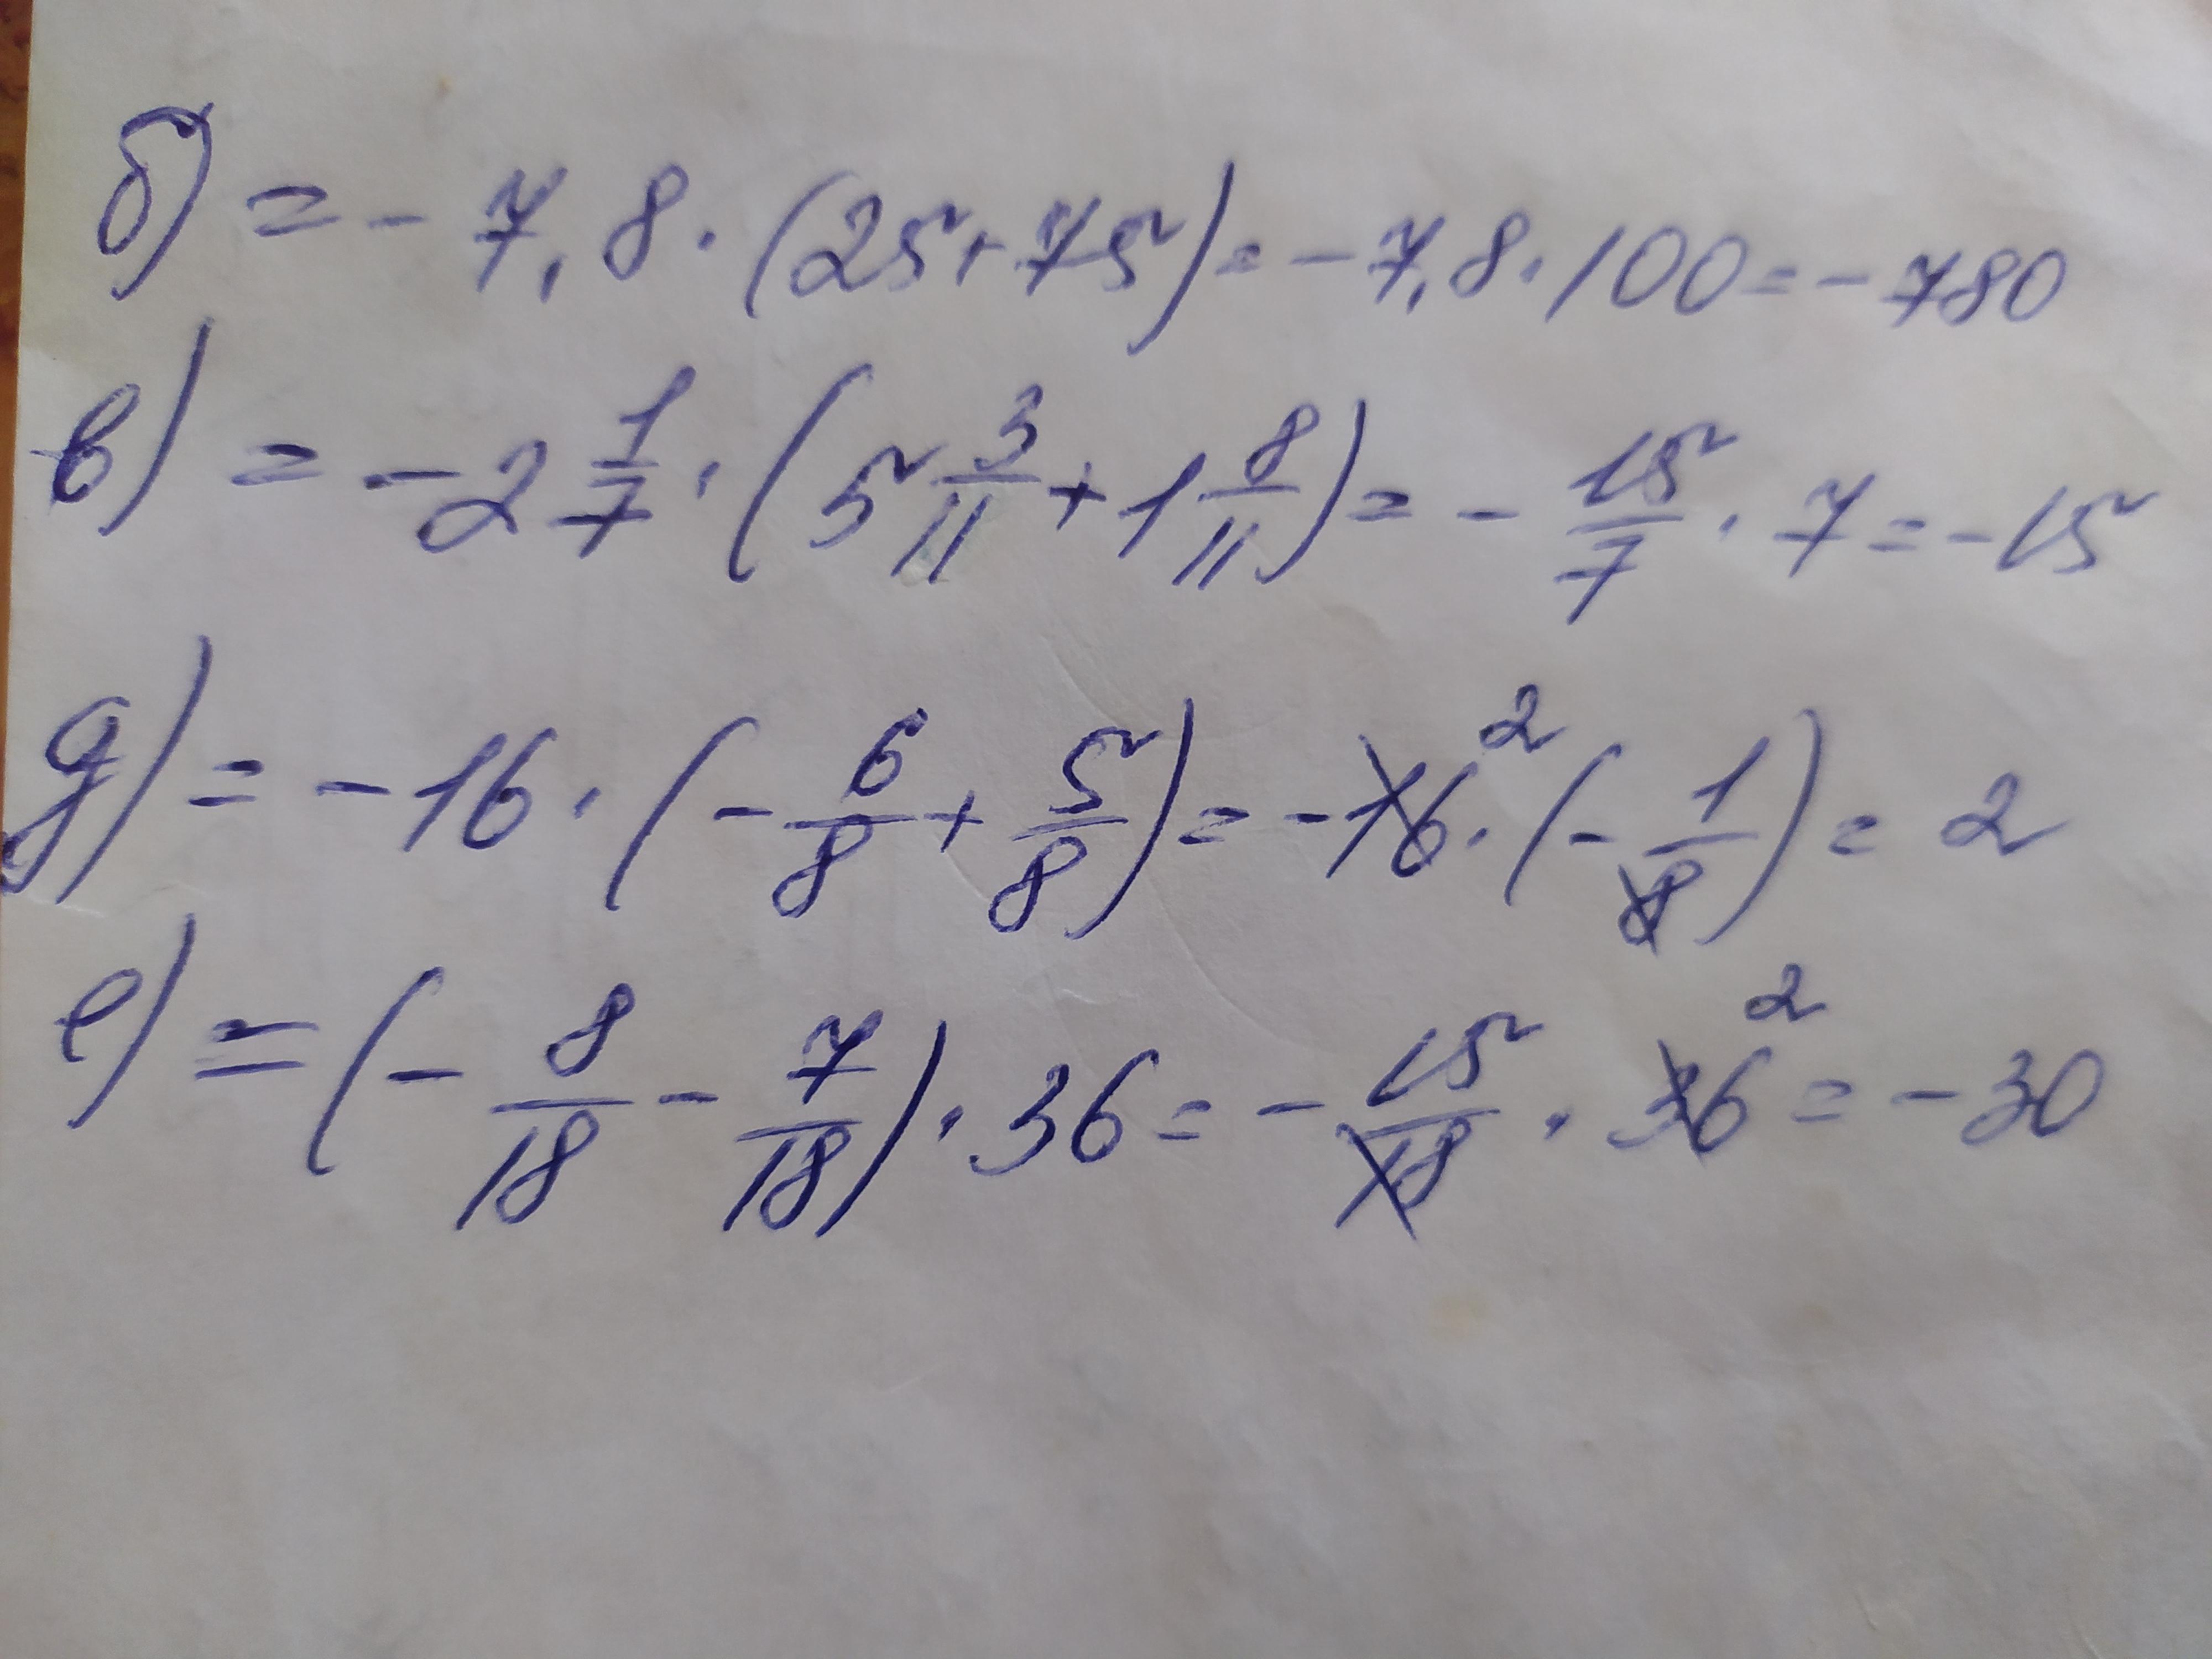 б) = - 7,8 · (25 + 75) = - 7,8 · 100 = - 780
в) = - 2 1/7 · (5 3/11 + 1 8/11) = - 15/7 · 7 = - 15
д) = - 16 · (- 6/8 + 5/8) = - 16 2 · (- 1/8) = 2
е) = (- 8/18 - 7/18) · 36 = - 15/18 · 36 2 = - 30